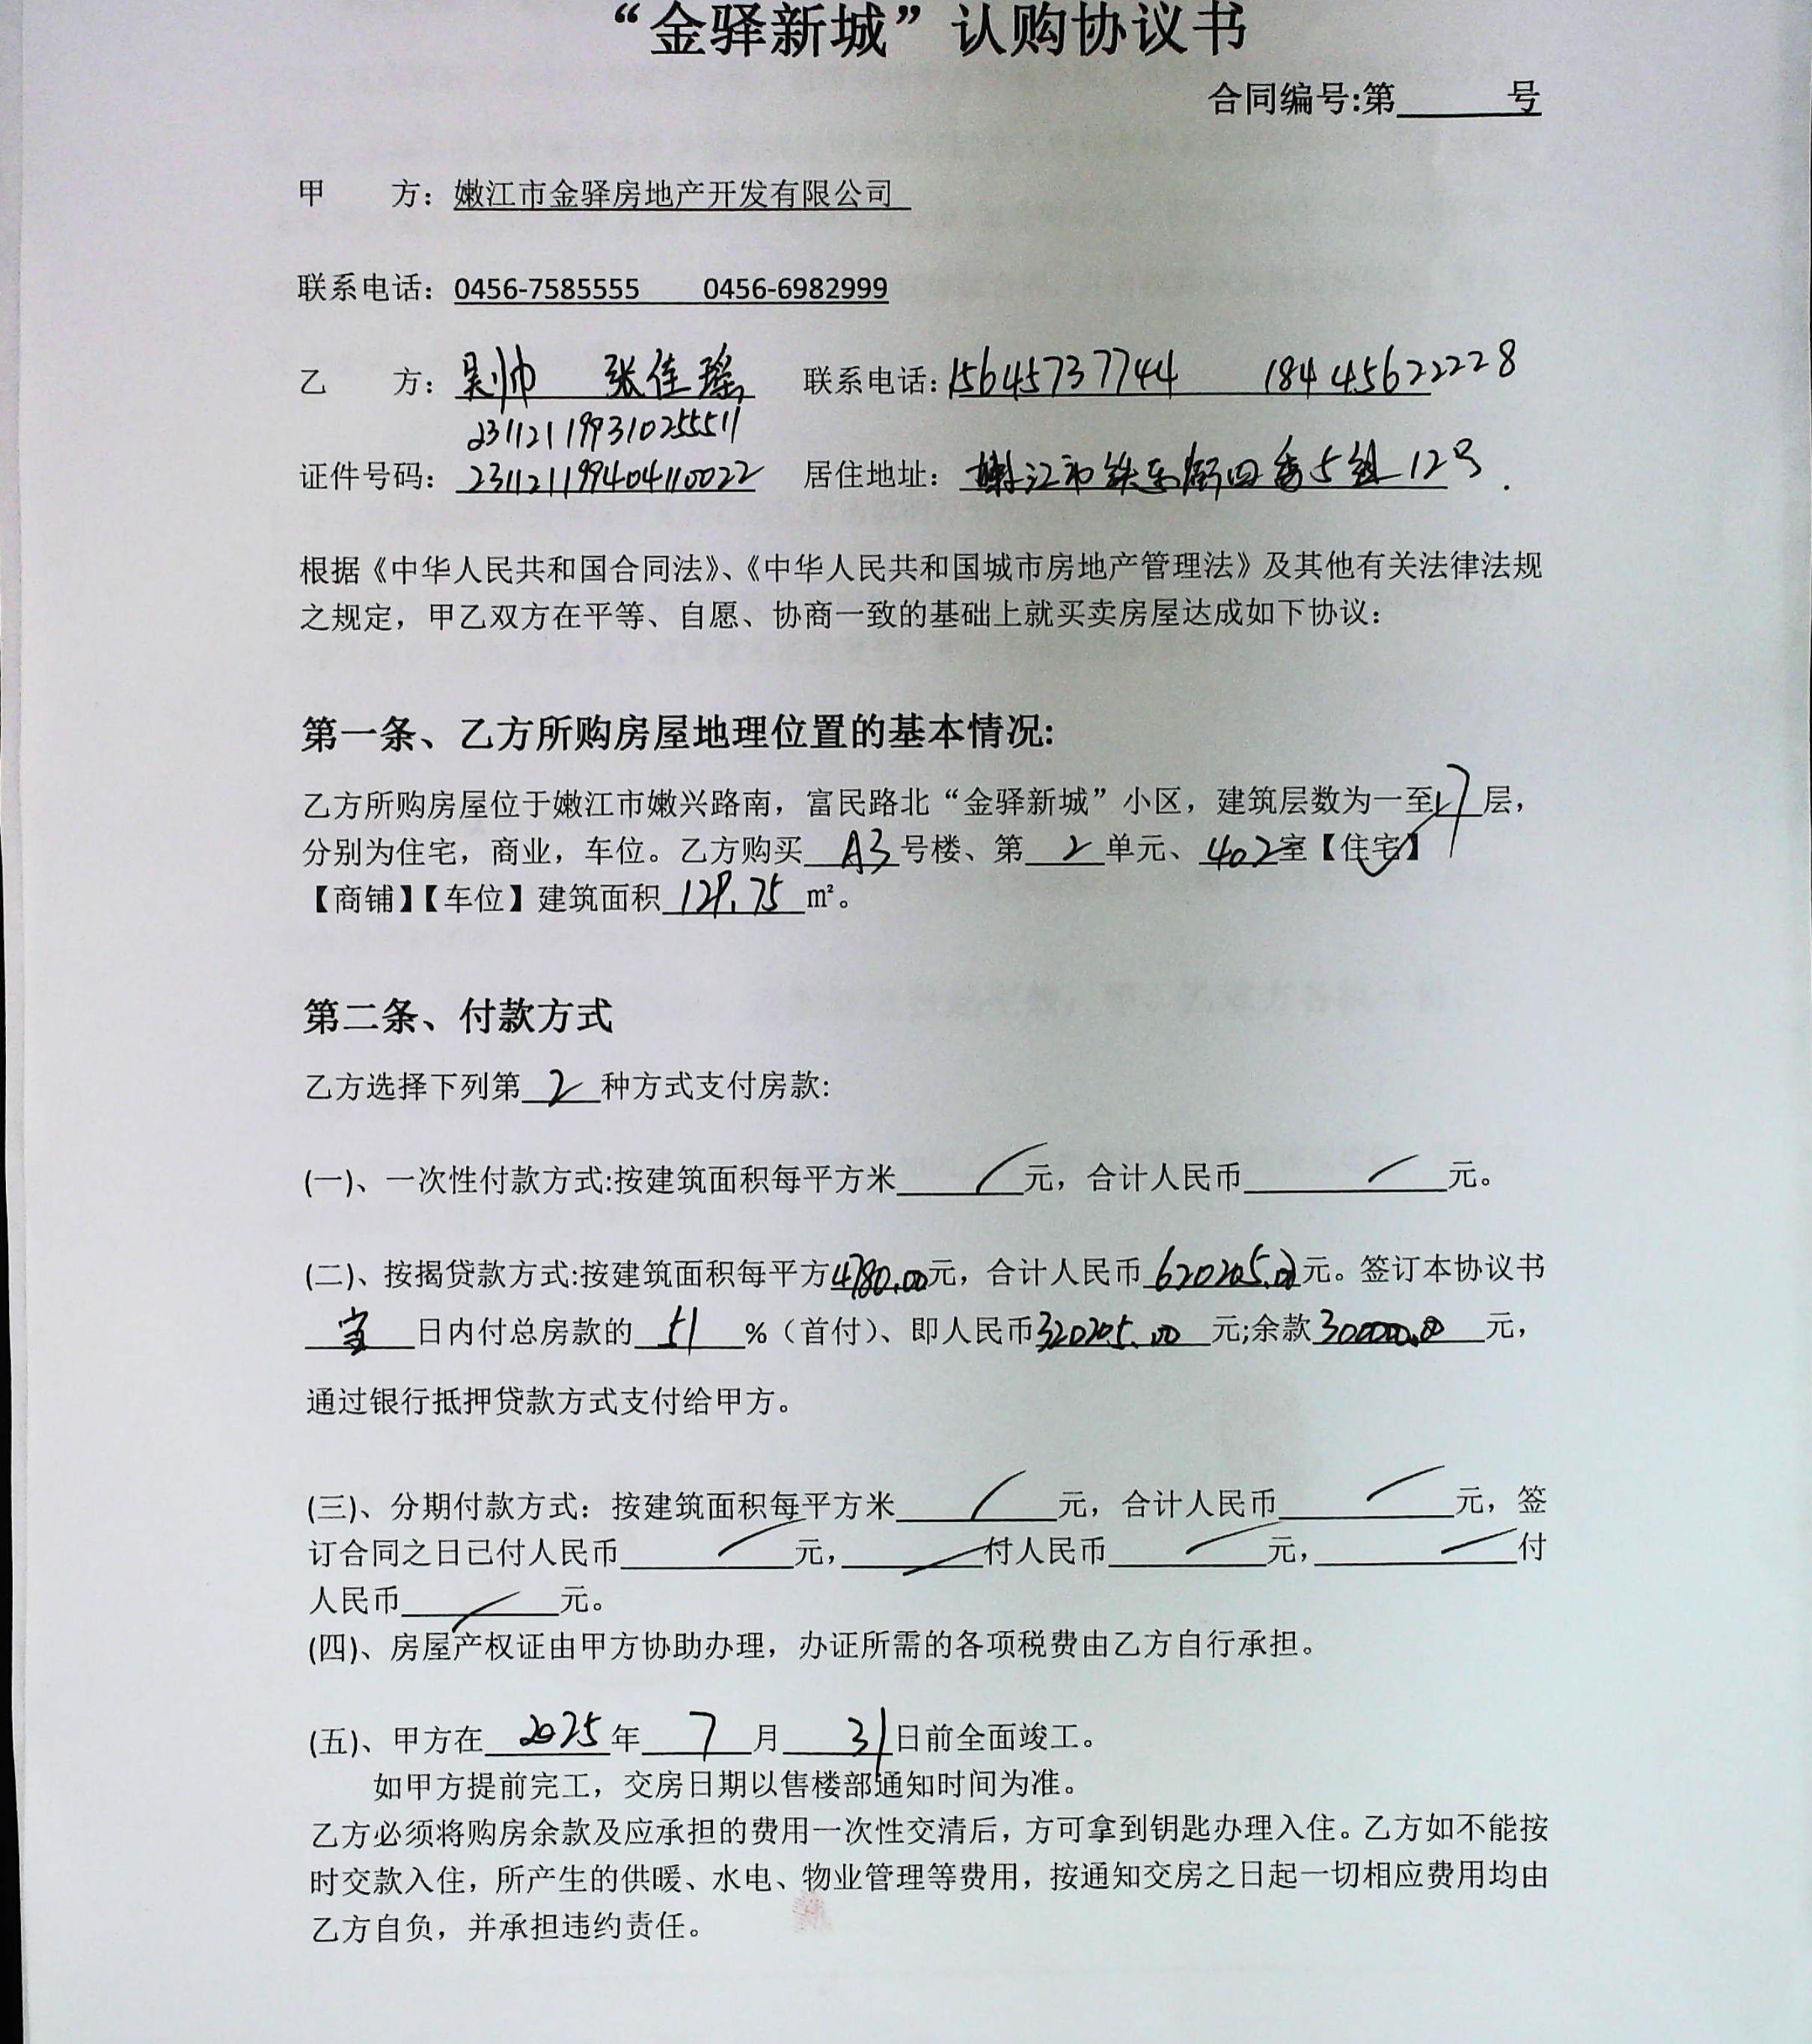 “金驿新城”认购协议书
合同编号:第______号
甲　　方：嫩江市金驿房地产开发有限公司
联系电话：0456-7585555　　0456-6982999
乙　　方：吴帅　张佳瑶　联系电话：15645737744　18445622228
231121199310255511
证件号码：231121199404110022　居住地址：嫩江市铁东街四委5组12号.
根据《中华人民共和国合同法》、《中华人民共和国城市房地产管理法》及其他有关法律法规
之规定，甲乙双方在平等、自愿、协商一致的基础上就买卖房屋达成如下协议：
第一条、乙方所购房屋地理位置的基本情况:
乙方所购房屋位于嫩江市嫩兴路南，富民路北“金驿新城”小区，建筑层数为一至17层，
分别为住宅，商业，车位。乙方购买 A3 号楼、第 2 单元、402室【住宅】
【商铺】【车位】建筑面积 129.75 ㎡。
第二条、付款方式
乙方选择下列第 2 种方式支付房款:
(一)、一次性付款方式:按建筑面积每平方米 / 元，合计人民币 / 元。
(二)、按揭贷款方式:按建筑面积每平方4780.00元，合计人民币 620205.00元。签订本协议书
日内付总房款的 51 %（首付）、即人民币320205.00 元;余款300000.00 元，
通过银行抵押贷款方式支付给甲方。
(三)、分期付款方式：按建筑面积每平方米 / 元，合计人民币 / 元，签
订合同之日已付人民币 / 元， / 付人民币 / 元， / 付
人民币 / 元。
(四)、房屋产权证由甲方协助办理，办证所需的各项税费由乙方自行承担。
(五)、甲方在 2025 年 7 月 31日前全面竣工。
如甲方提前完工，交房日期以售楼部通知时间为准。
乙方必须将购房余款及应承担的费用一次性交清后，方可拿到钥匙办理入住。乙方如不能按
时交款入住，所产生的供暖、水电、物业管理等费用，按通知交房之日起一切相应费用均由
乙方自负，并承担违约责任。